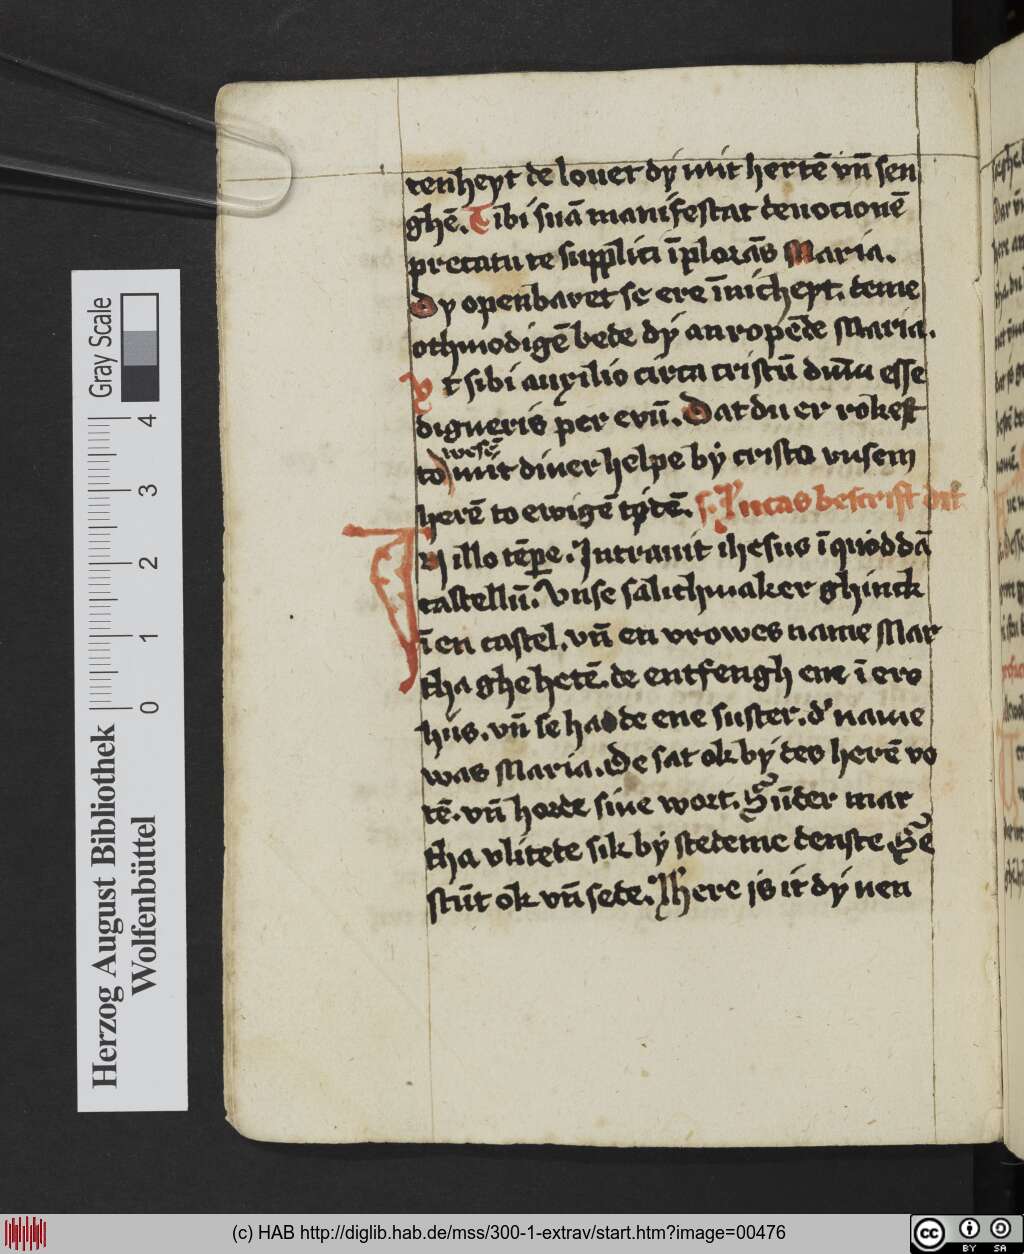 tenheyt de louet dÿ mit hertē vn̄ sen
ghē. Tibi suā manifestat deuocionē
precatu te supplici īploras̄ Maria.
Dy openbaret se ere īnicheyt. deme
othmodigē bede dÿ anropēde Maria.
Vt sibi auxilio circa cristū dum̄ esse
digneris per evū. Dat du er rokest
wesē
to mit diner helpe bÿ cristo vnsem
herē to ewigē tydē. s. Lucas bescrift dit
IN illo tēpe. Intrauit ihesus ī quoddā
castellū. Vnse sālichmaker ghinck
ī en castel. vn̄ en vrowes name Mar
tha ghe hetē. de entfengh ene ī ere
hūs. vn̄ se hadde ene suster. d' name
was Maria. De sat ok bÿ des herē vo
tē. vn̄ horde sine wort. Sūder mar
tha vlitede sik bÿ stedeme denste. Se
stūt ok vn̄ sede. Here is it dÿ nen
Gray Scale
4
3
2
1
0
Herzog August Bibliothek
Wolfenbüttel
(c) HAB http://diglib.hab.de/mss/300-1-extrav/start.htm?image=00476
cc
BY SA